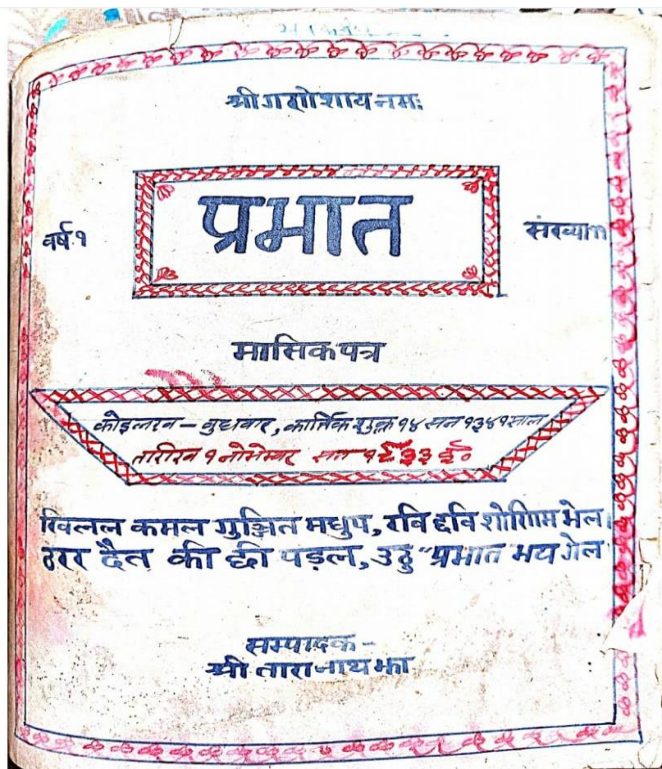 श्रीगणेशाय नमः
वर्ष.१
प्रभात
संख्या १
मासिक पत्र
कोइलख – बुधवार, कार्तिक शुक्ल १४ सन १३४१ साल
तारीख १ नोमेम्बर सन १९३३ ई०
खिलल कमल गुञ्जित मधुप, रवि छवि शोणिम भेल।
ठरर दैत की छी पड़ल, उठु "प्रभात भय गेल
सम्पादक –
श्री तारानाथ झा